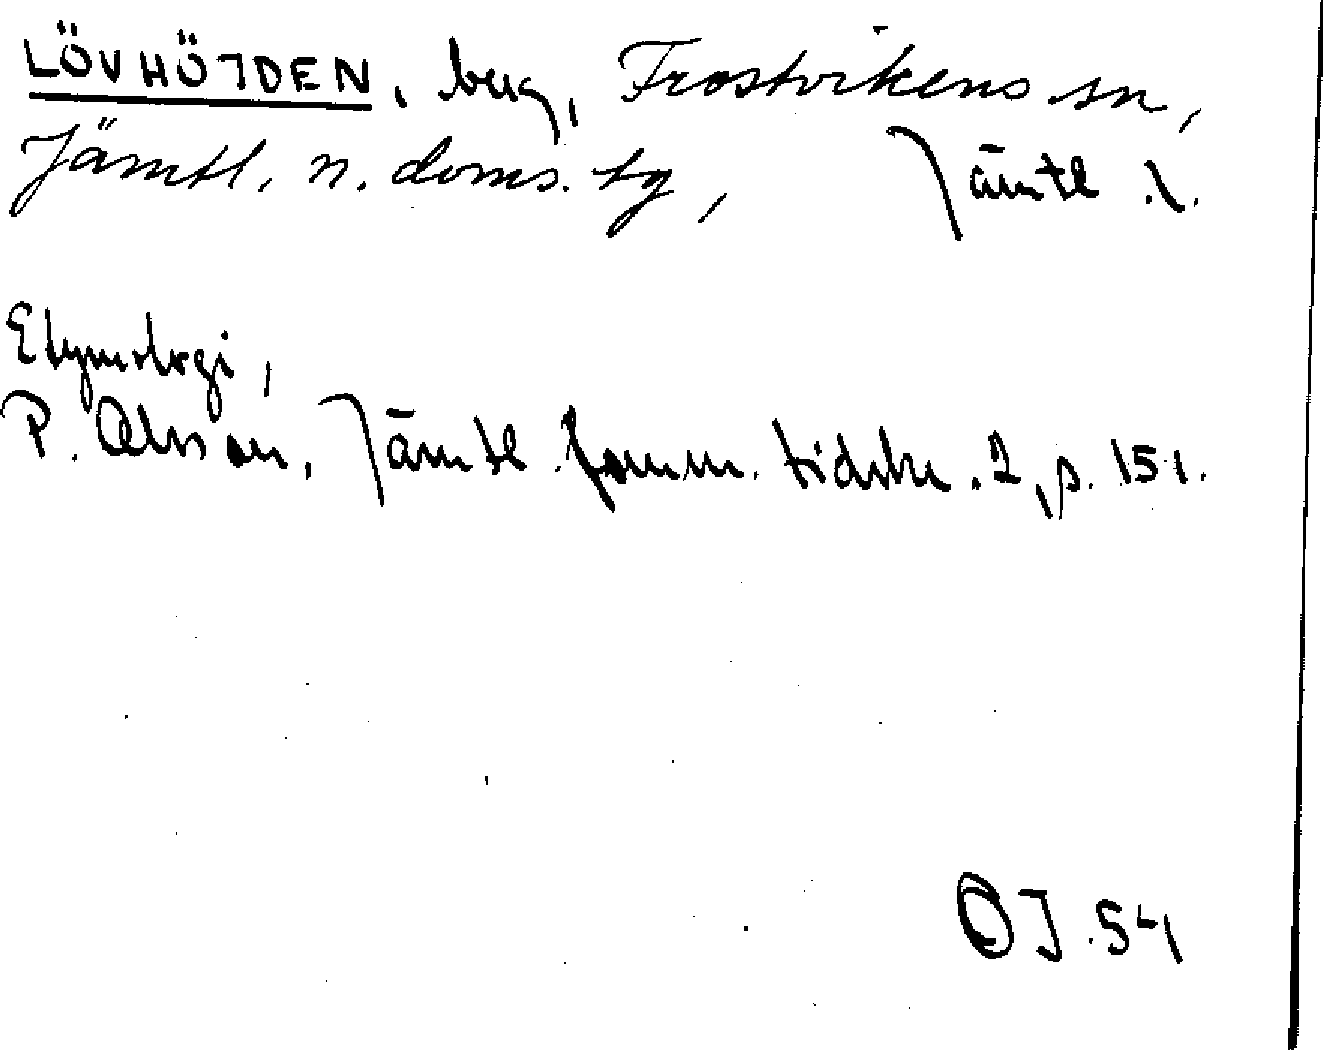 LÖVHÖJDEN, berg, Frostvikens sn,
Jämtl. n. doms. tg, Jämtl. l.
Etymologi,
P. Olsson, Jämtl. fornm. tidskr. 2, p. 151.
OJ 54